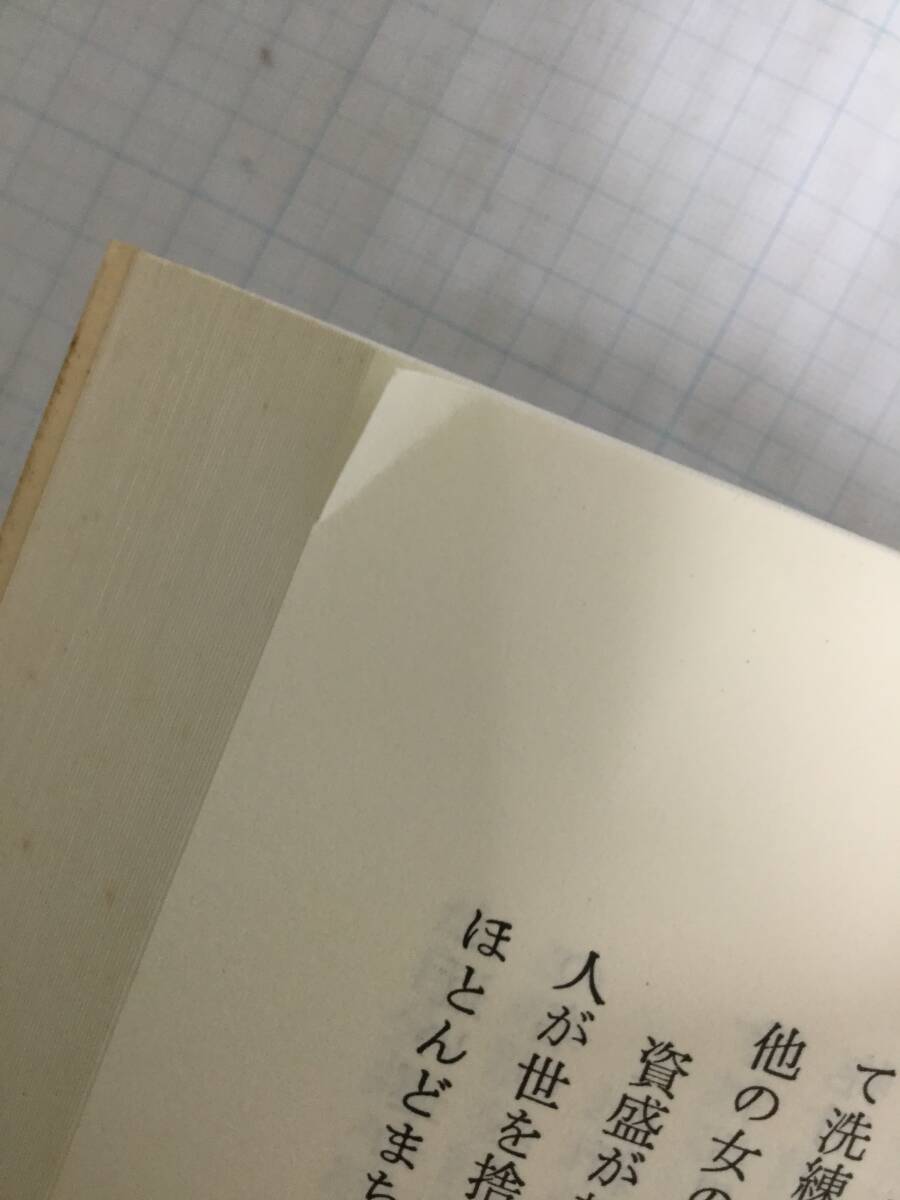 て洗練
他の女の
資盛が
人が世を捨
ほとんどまち